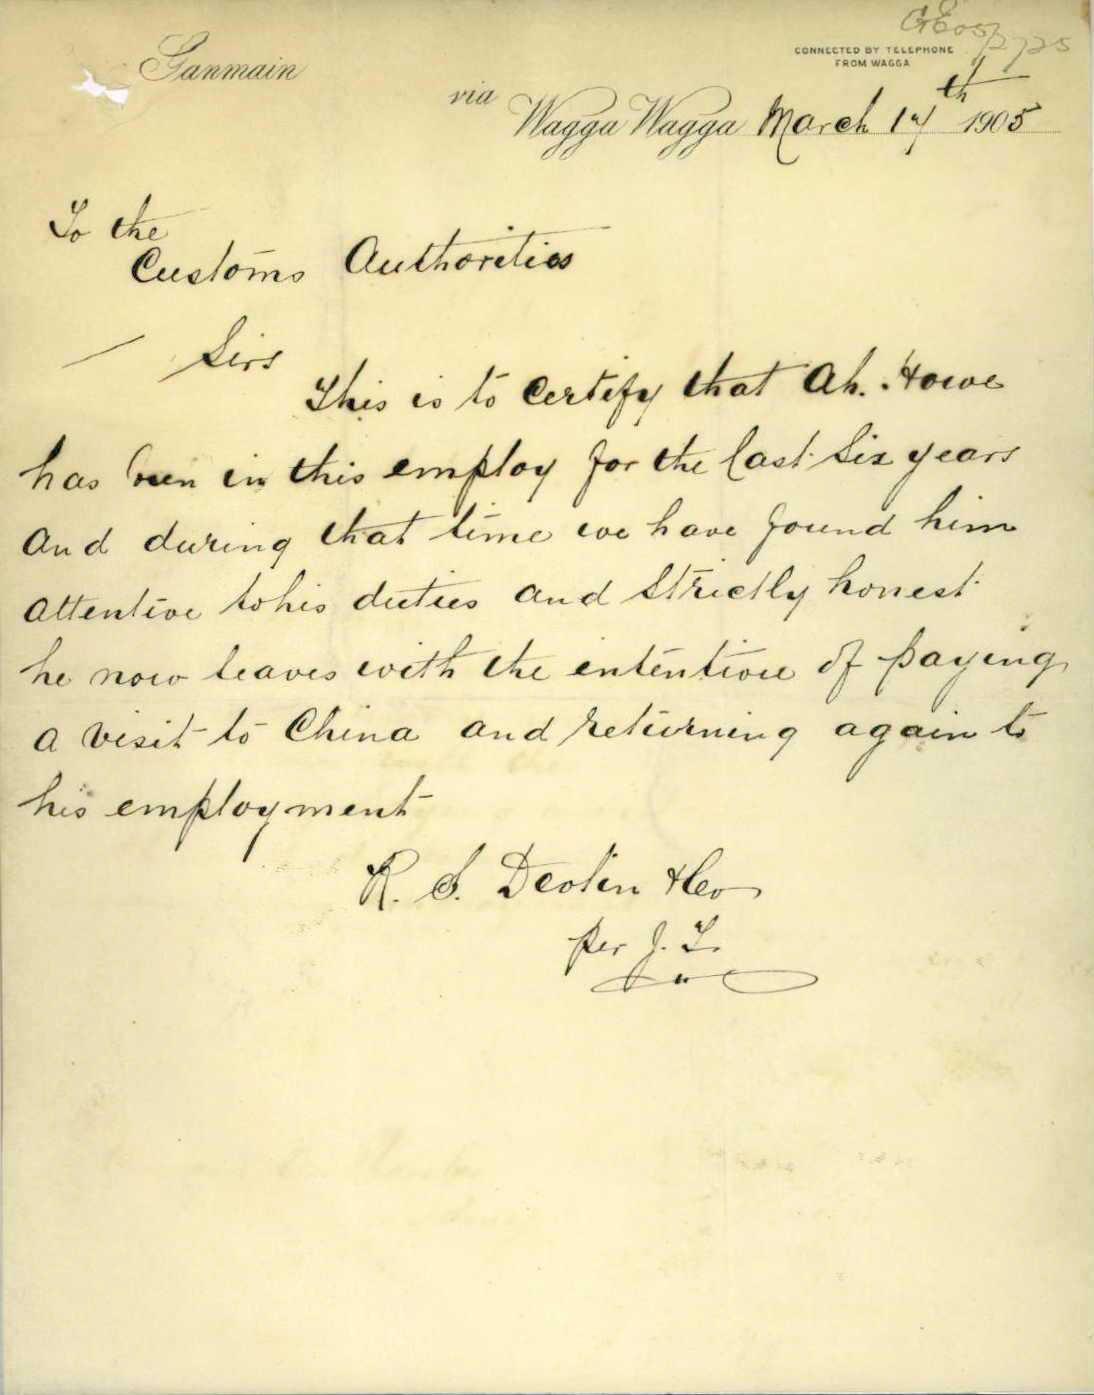 CONNECTED BY TELEPHONE
FROM WAGGA
Ganmain
via
Wagga Wagga March 17th 1905
To the
Customs Authorities
Sirs
This is to Certify that Ah. Howe
has been in this employ for the last six years
and during that time we have found him
attentive to his duties and strictly honest
he now leaves with the intention of paying
a visit to China and returning again to
his employment
R. S. Devlin & Co
per J. L.